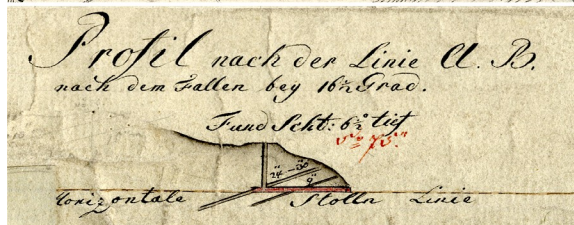 Profil nach der Linie A. B.
nach dem Fallen bey 16½ Grad.
Fund Scht: 6½° tief
24"–30"
9"
Horizontale Stolln Linie